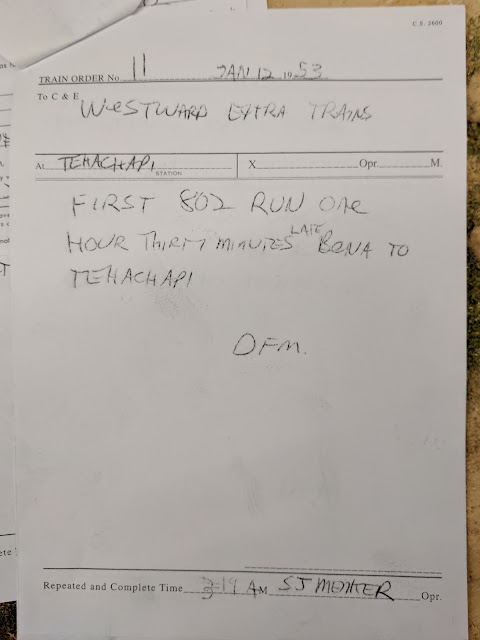 C.S. 2600
TRAIN ORDER No. 11 JAN 12 1953
To C & E WESTWARD EXTRA TRAINS
At TEHACHAPI X Opr. M.
STATION
FIRST 802 RUN ONE
HOUR THIRTY MINUTES LATE BENA TO
TEHACHAPI
DFM.
Repeated and Complete Time 3-19 AM SJ MENKER Opr.